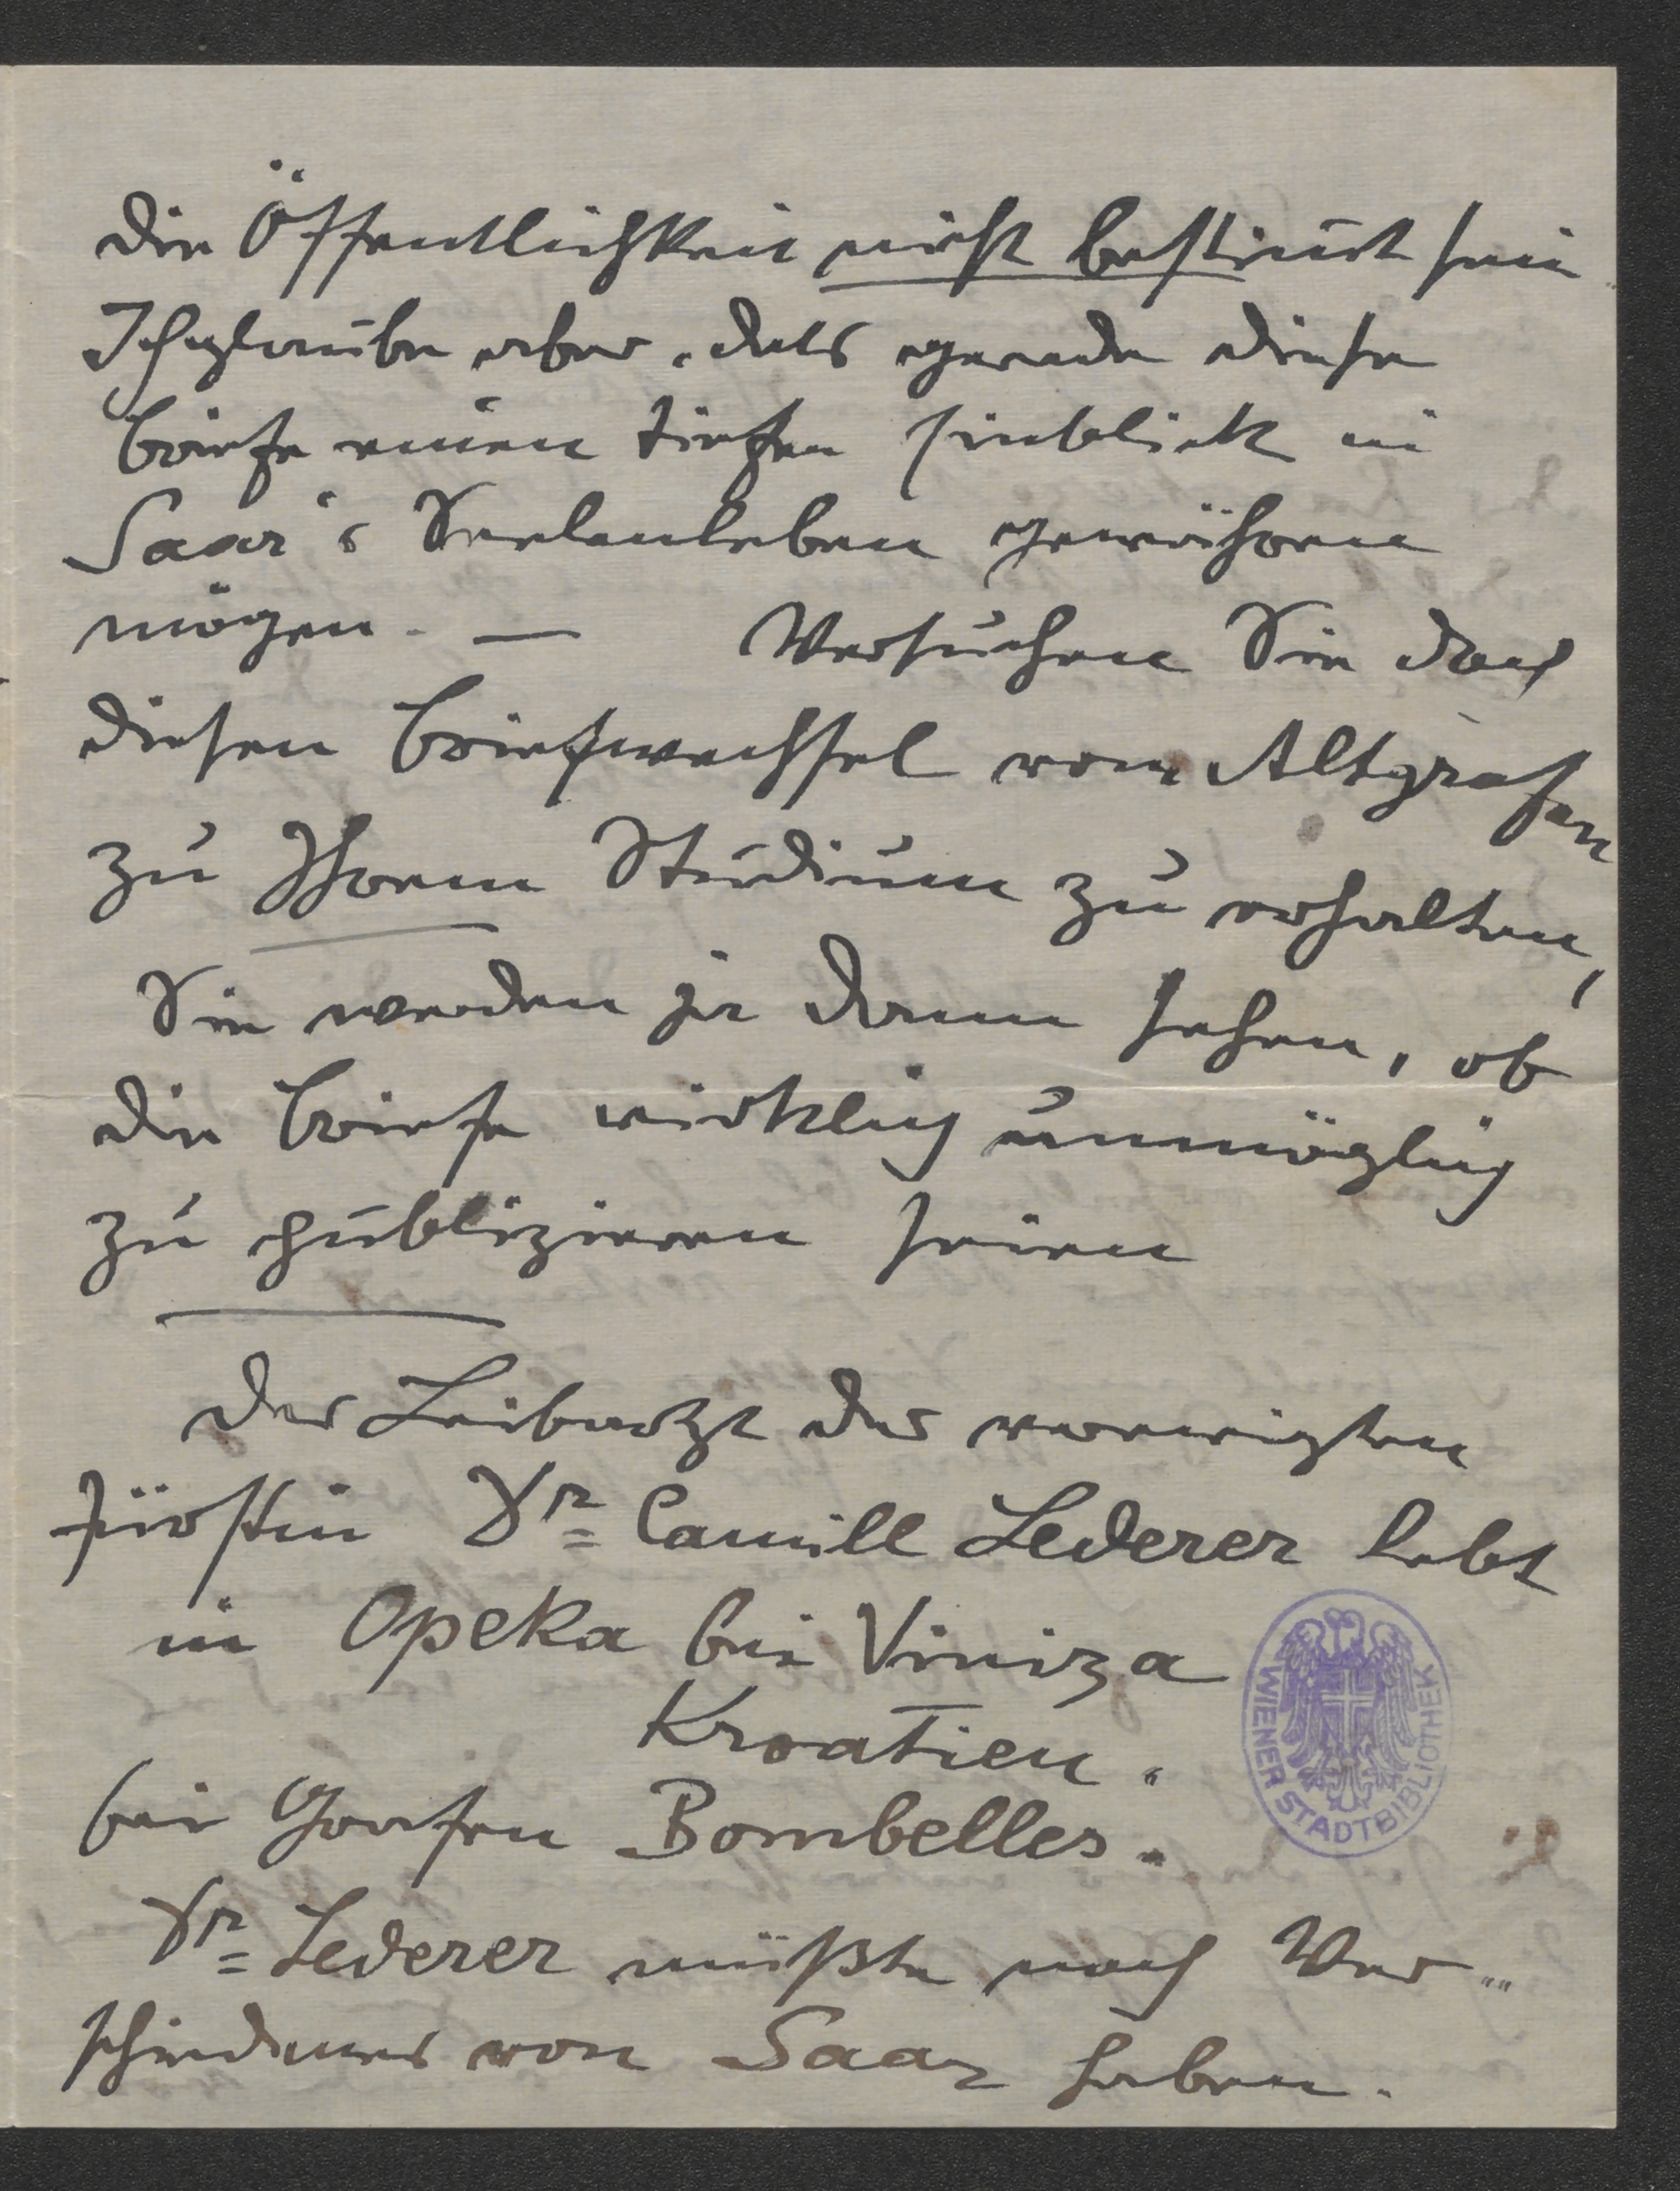 die Öffentlichkeit nicht bestim̄t sein
Ich glaube aber, dass gerade diese
Briefe einen tiefen Einblick in
Saar's Seelenleben gewähren
mögen. — Versuchen Sie doch
diesen Briefwechsel vom Altgrafen
zu Ihrem Studium zu erhalten,
Sie werden ja dann sehen, ob
die Briefe wirklich unmöglich
zu publizieren seien
Der Leibarzt der verewigten
Fürstin Dr. Camill Lederer lebt
in Opeka bei Viniza
Kroatien.
bei Grafen Bombelles.
Dr. Lederer müßte noch Ver-
schiedenes von Saar haben.
WIENER STADTBIBLIOTHEK